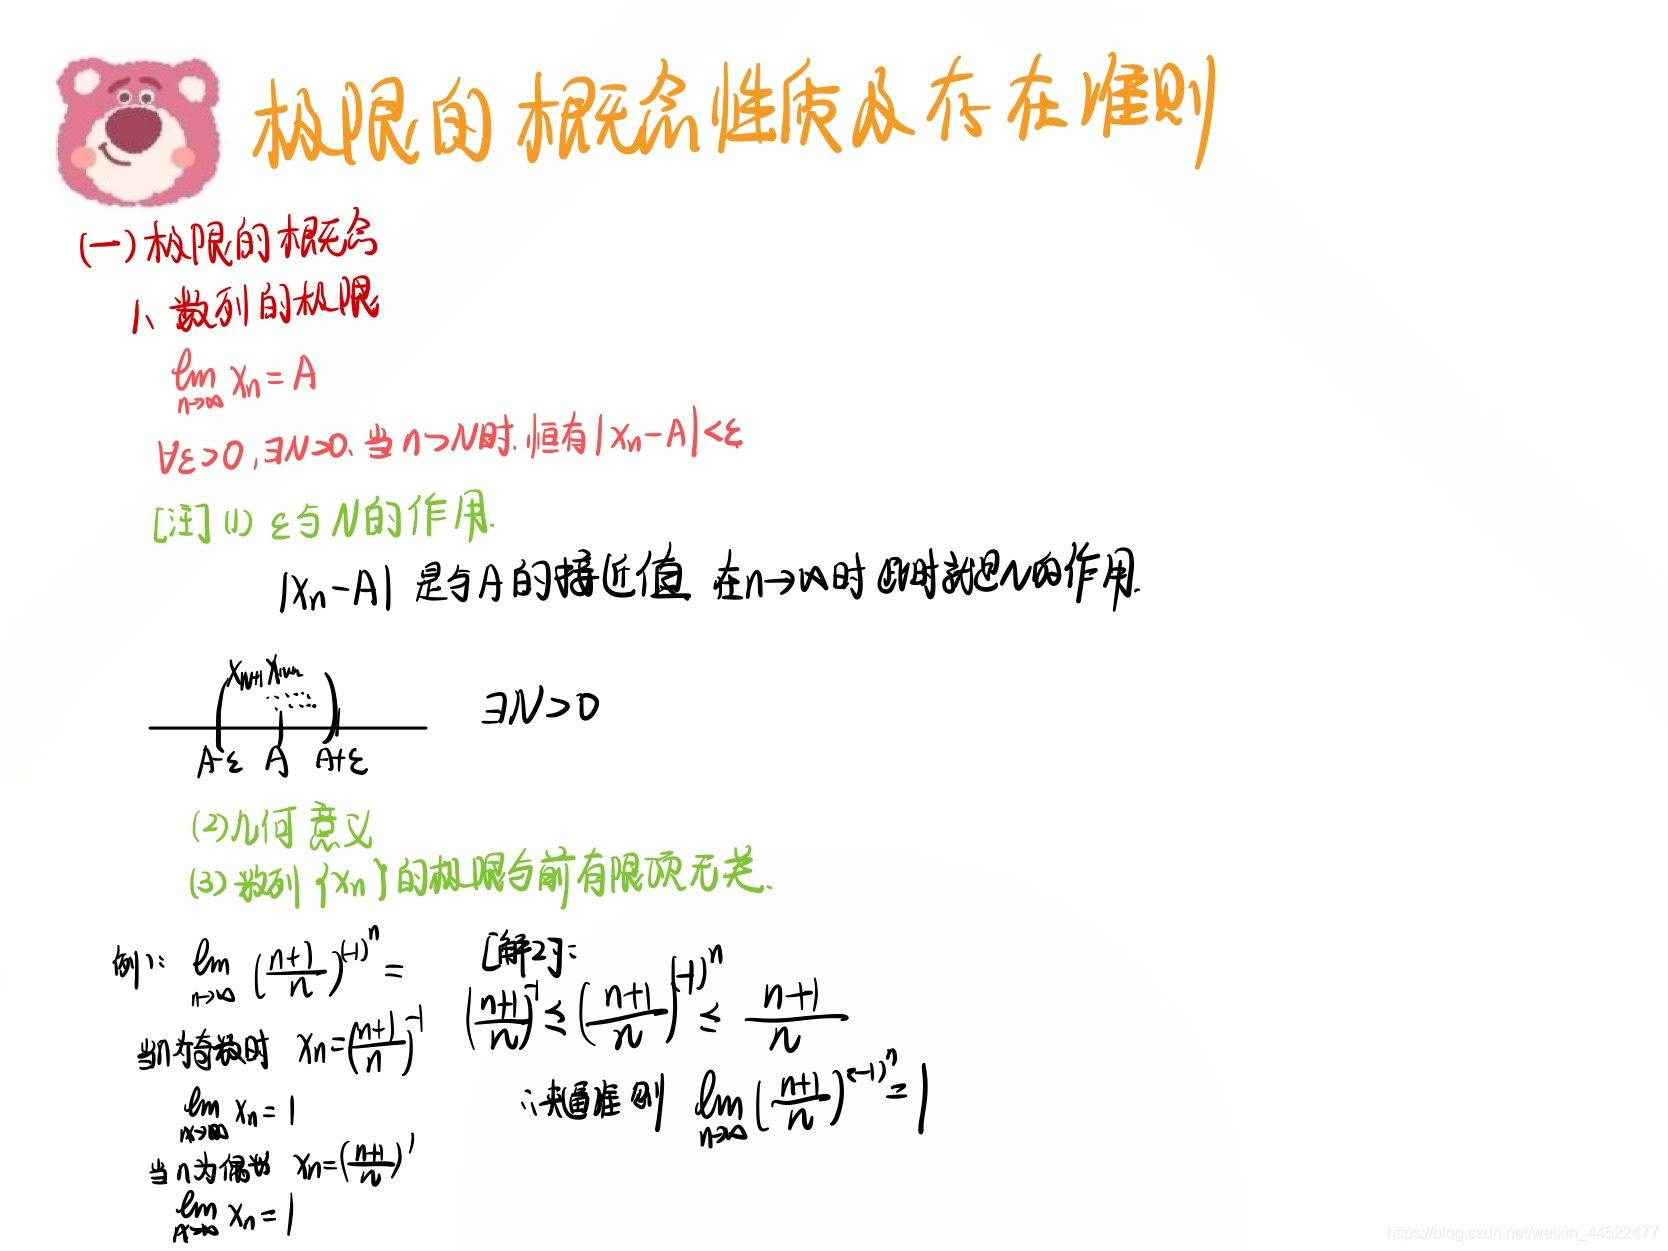 极限的概念性质及存在准则
(一)极限的概念
1、数列的极限
lim n→∞ xn = A
∀ε>0,∃N>0、当n>N时.恒有|xn-A|<ε
[注](1) ε与N的作用.
|xn-A| 是与A的接近值 在n→∞时 此时就是N的作用.
xN+1
∃N>0
A-ε A A+ε
(2)几何意义
(3)数列{xn}的极限与前有限项无关.
例1: lim n→∞ ((n+1)/n)^(-1)^n =
当n为奇数时 xn=((n+1)/n)^-1
lim n→∞ xn = 1
当n为偶数 xn=((n+1)/n)^1
lim n→∞ xn = 1
[解2]:
((n+1)/n)^-1 ≤ ((n+1)/n)^(-1)^n ≤ (n+1)/n
∴夹逼准则 lim n→∞ ((n+1)/n)^(-1)^n = 1
https://blog.csdn.net/weixin_44522477